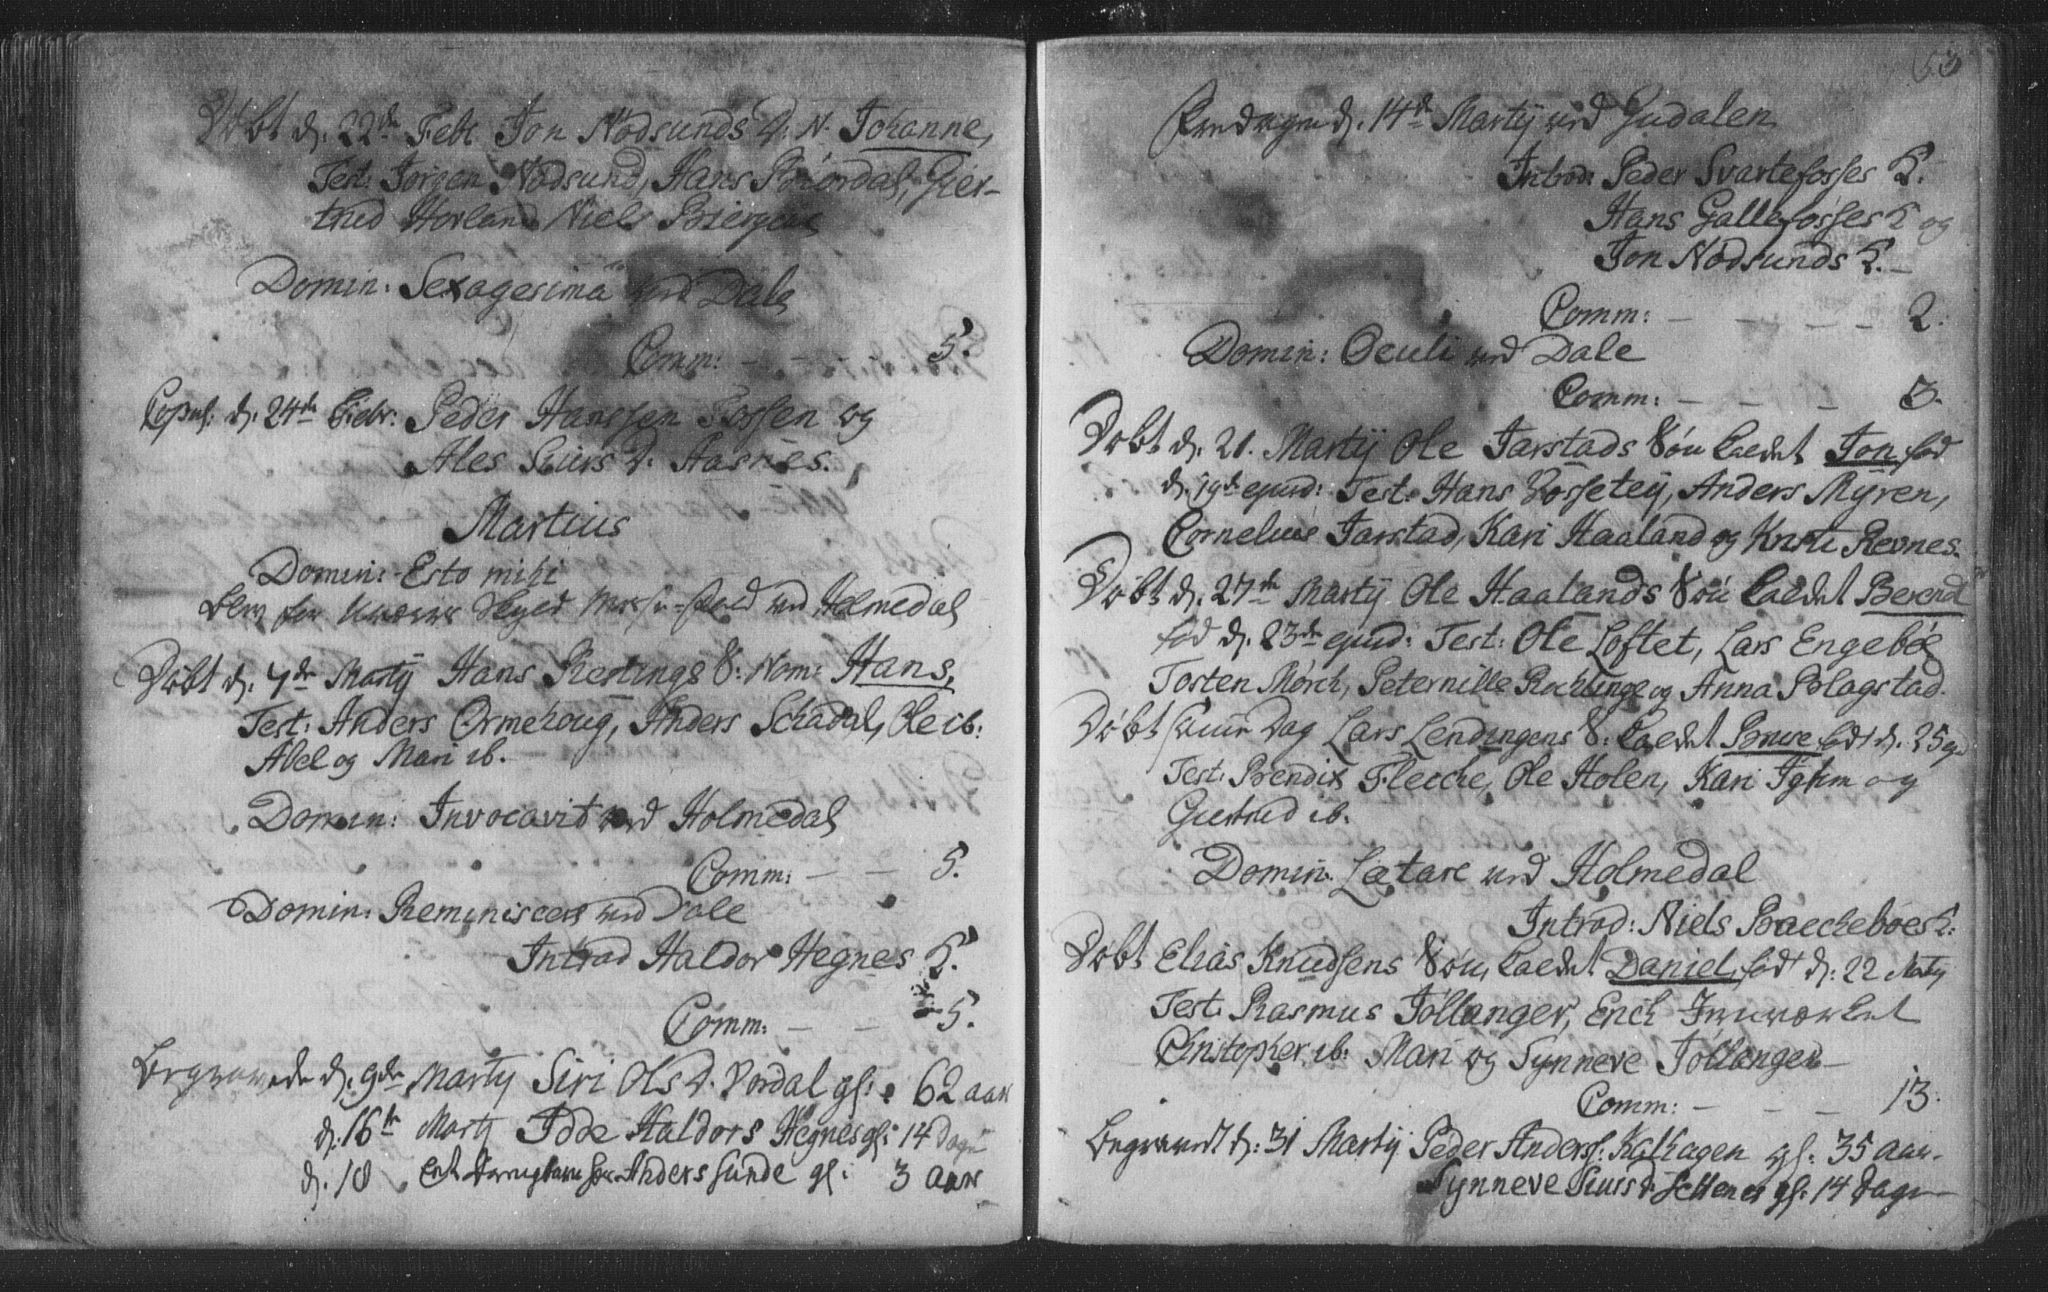 Døbt d. 22de Febr Jon Nødsunds D. N. Johanne,
Test: Jørgen Nødsund, Hans Biørdal, Gier-
trud Horland Niels
Domin: Sexagesima ved Dale
Comm: — — — 5.
Copul: d. 24de Febr: Peder Hanssen Fossen og
Ales Siurs D. Aasnes.
Martius
Domin: Esto mihi
blev for Skyld Messe-fald ved Holmedal
Døbt d. 7de Martij Hans Restings S: Nom: Hans,
Test: Anders Ormehoug, Anders Schadal, Ole ib:
Abel og Mari ib.
Domin: Invocavit ved Holmedal
Comm: — — 5.
Domin: Reminiscere ved Dale
Introd Haldor Hegnes K.
Comm: — — 5.
Begravede d. 9de Martij Siri Ols D. Vordal gl: 62 aar
d. 16de Martij Haldors Hegnes gl: 14 Dage
d. 18 Anders Sunde gl: 3 aar
63
Fredagen d. 14de Martij ved Gudalen
Introd: Peder Svartefosses K.
Hans Gallefosses K og
Jon Nødsunds K. —
Comm: — — — — 2.
Domin: Oculi ved Dale
Comm: — — — 3.
Døbt d. 21. Martij Ole Jarstads Søn kaldet Jon, fød
d. 19de ejusd: Test: Hans Vossetey, Anders Myren,
Cornelius Jarstad, Kari Haaland og Kristi Revnes.
Døbt d. 27de Martij Ole Haalands Søn kaldet Berend
fød d. 23de ejusd: Test: Ole Loftet, Lars Engebøe
Torsten Mørch, Peternille og Anna Blagstad.
Døbt samme Dag Lars Lendingens S: kaldet født d. 25
Test: Bendix Fleeche, Ole Holen, Kari og
Giertrud ib.
Domin. Lætare ved Holmedal
Introd: Niels Baecheboes K.
Døbt Elias Knudsens Søn, kaldet Daniel, født d: 22 Martij
Test: Rasmus Tollanger, Erich
Christopher ib: Mari og Synneve Tollanger —
Comm: — — — 13.
Begravet d: 31 Martij Peder Anderss: Kalhagen gl: 35 aar.
Synneve Siurs D. gl: 14 Dage